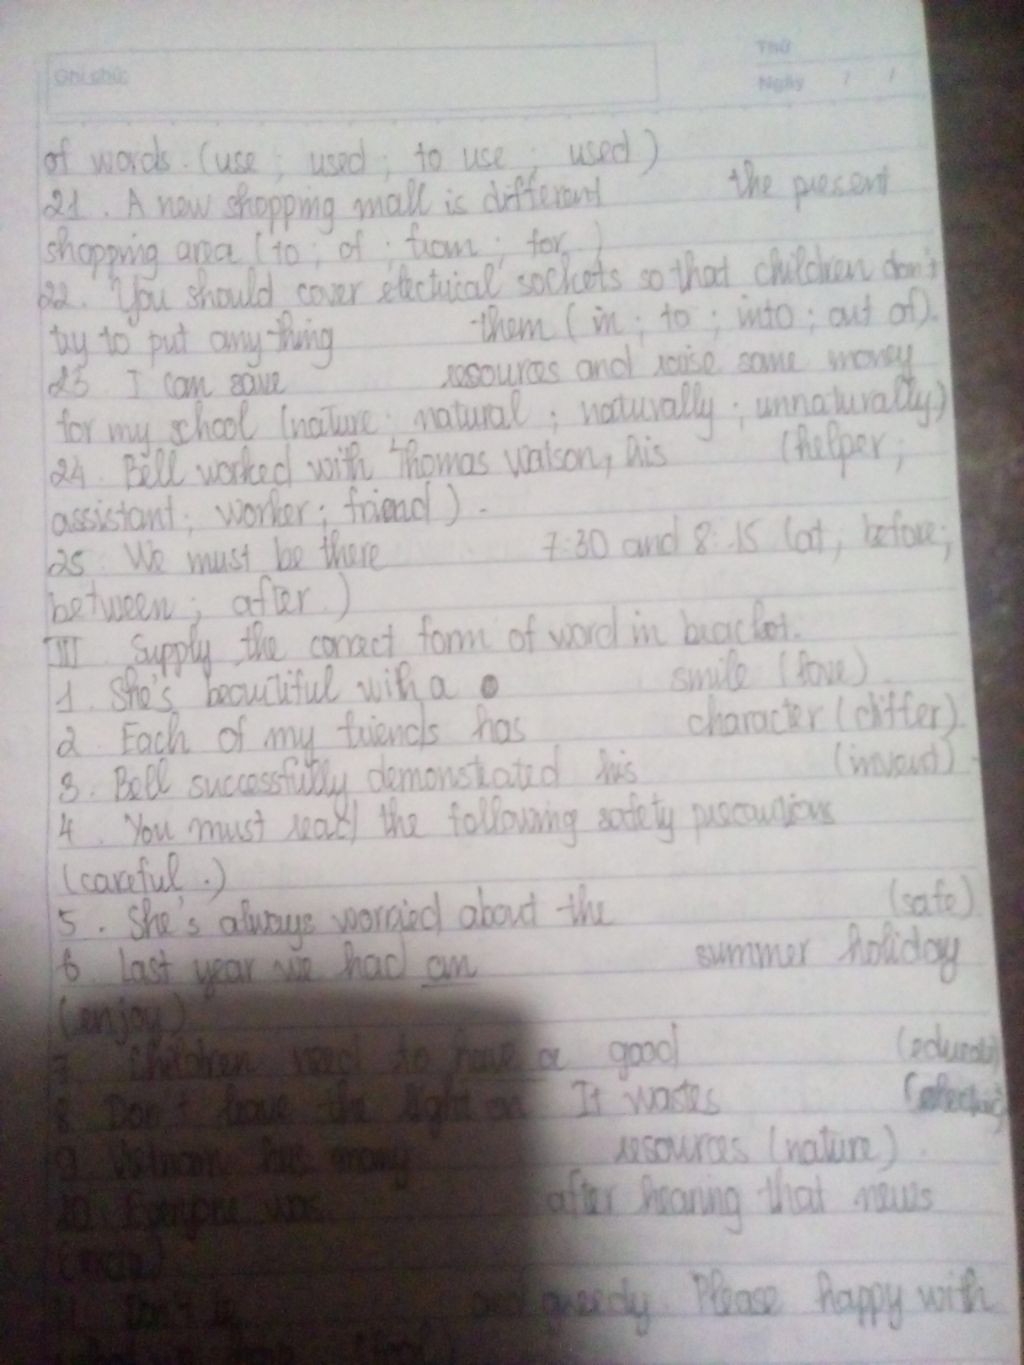 Ghi chú:
Thứ
Ngày / /
of words. (use ; used ; to use ; used)
21. A new shopping mall is different the present
shopping area (to ; of ; from ; for )
22. You should cover electrical sockets so that children don't
try to put anything them (in ; to ; into ; out of).
23. I can save resources and raise some money
for my school (nature ; natural ; naturally ; unnaturally)
24. Bell worked with Thomas Watson, his (helper ;
assistant ; worker ; friend).
25. We must be there 7:30 and 8:15 (at ; before ;
between ; after.)
III. Supply the correct form of word in bracket.
1. She's beautiful with a smile (love).
2. Each of my friends has character (differ).
3. Bell successfully demonstrated his (invent).
4. You must read the following safety precautions
(careful.)
5. She's always worried about the (safe)
6. Last year we had an summer holiday
(enjoy)
7. Children need to have a good (educate)
8. Don't leave the light on It wastes
9. Vietnam has many resources (nature).
10. Everyone was after hearing that news
11. Don't be and greedy. Please happy with